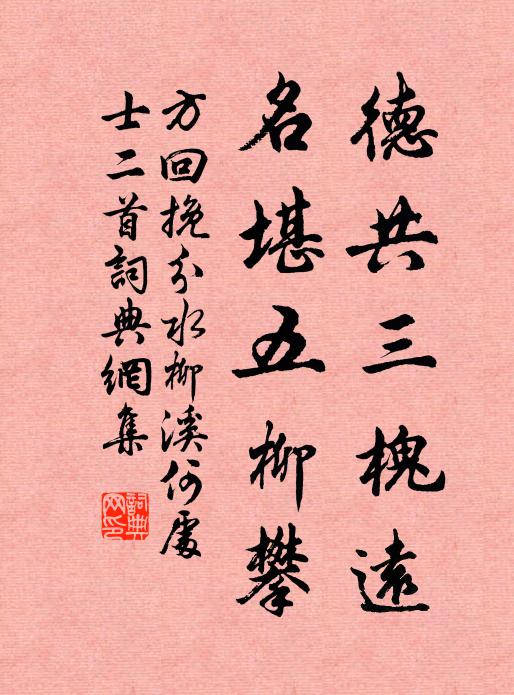 德共三槐遠
名堪五柳攀
方回挽分水柳溪何處
士二首詞典網集
詞典網印